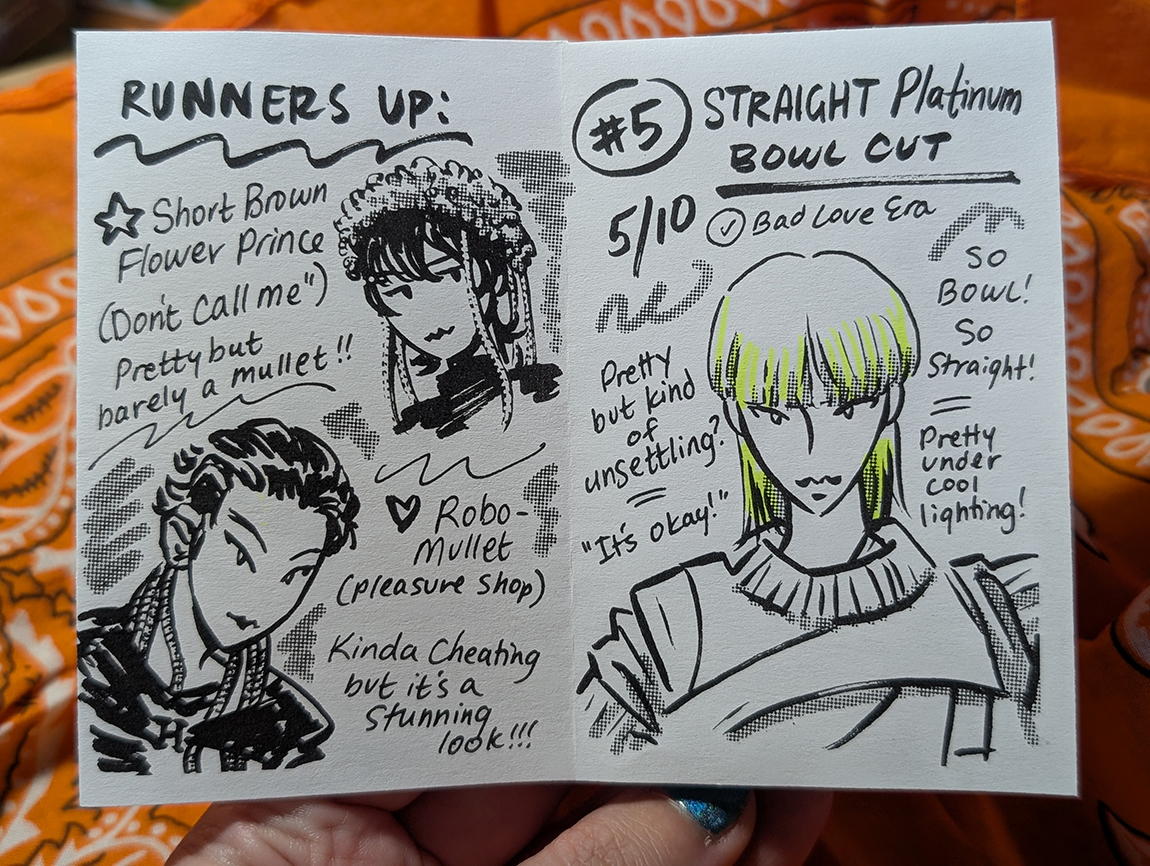 RUNNERS UP:
☆ Short Brown
Flower Prince
(Don't Call me")
Pretty but
barely a mullet!!
♡ Robo-
Mullet
(pleasure shop)
Kinda Cheating
but it's a
Stunning
look!!!
#5 STRAIGHT Platinum
BOWL CUT
5/10 ✓ Bad Love Era
Pretty
but kind
of
unsettling?
=
"It's okay!"
So
Bowl!
So
Straight!
=
Pretty
under
cool
lighting!